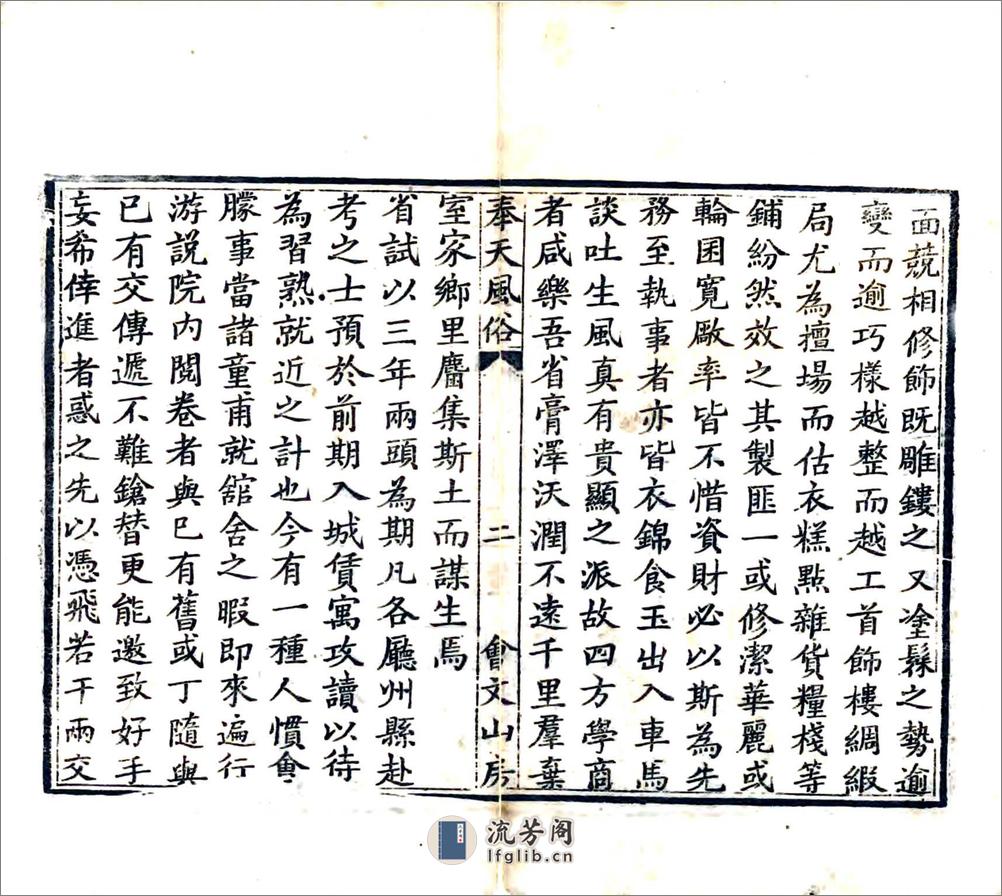 面競相修飾既雕鏤之又塗髹之勢逾
變而逾巧樣越整而越工首飾樓綢緞
局尤為擅場而估衣糕點雜貨糧棧等
鋪紛然效之其製匪一或修潔華麗或
輪囷寬厰率皆不惜資財必以斯為先
務至執事者亦皆衣錦食玉出入車馬
談吐生風真有貴顯之派故四方學商
者咸樂吾省膏澤沃潤不遠千里羣棄
奉天風俗 二 會文山房
室家鄉里麕集斯土而謀生焉
省試以三年兩頭為期凡各廳州縣赴
考之士預於前期入城賃寓攻讀以待
為習熟就近之計也今有一種人慣會
朦事當諸童甫就舘舍之暇即來遍行
游說院內閱卷者與已有舊或丁隨與
已有交傳遞不難鎗替更能邀致好手
妄希倖進者惑之先以憑飛若干兩交
流芳阁
lfglib.cn